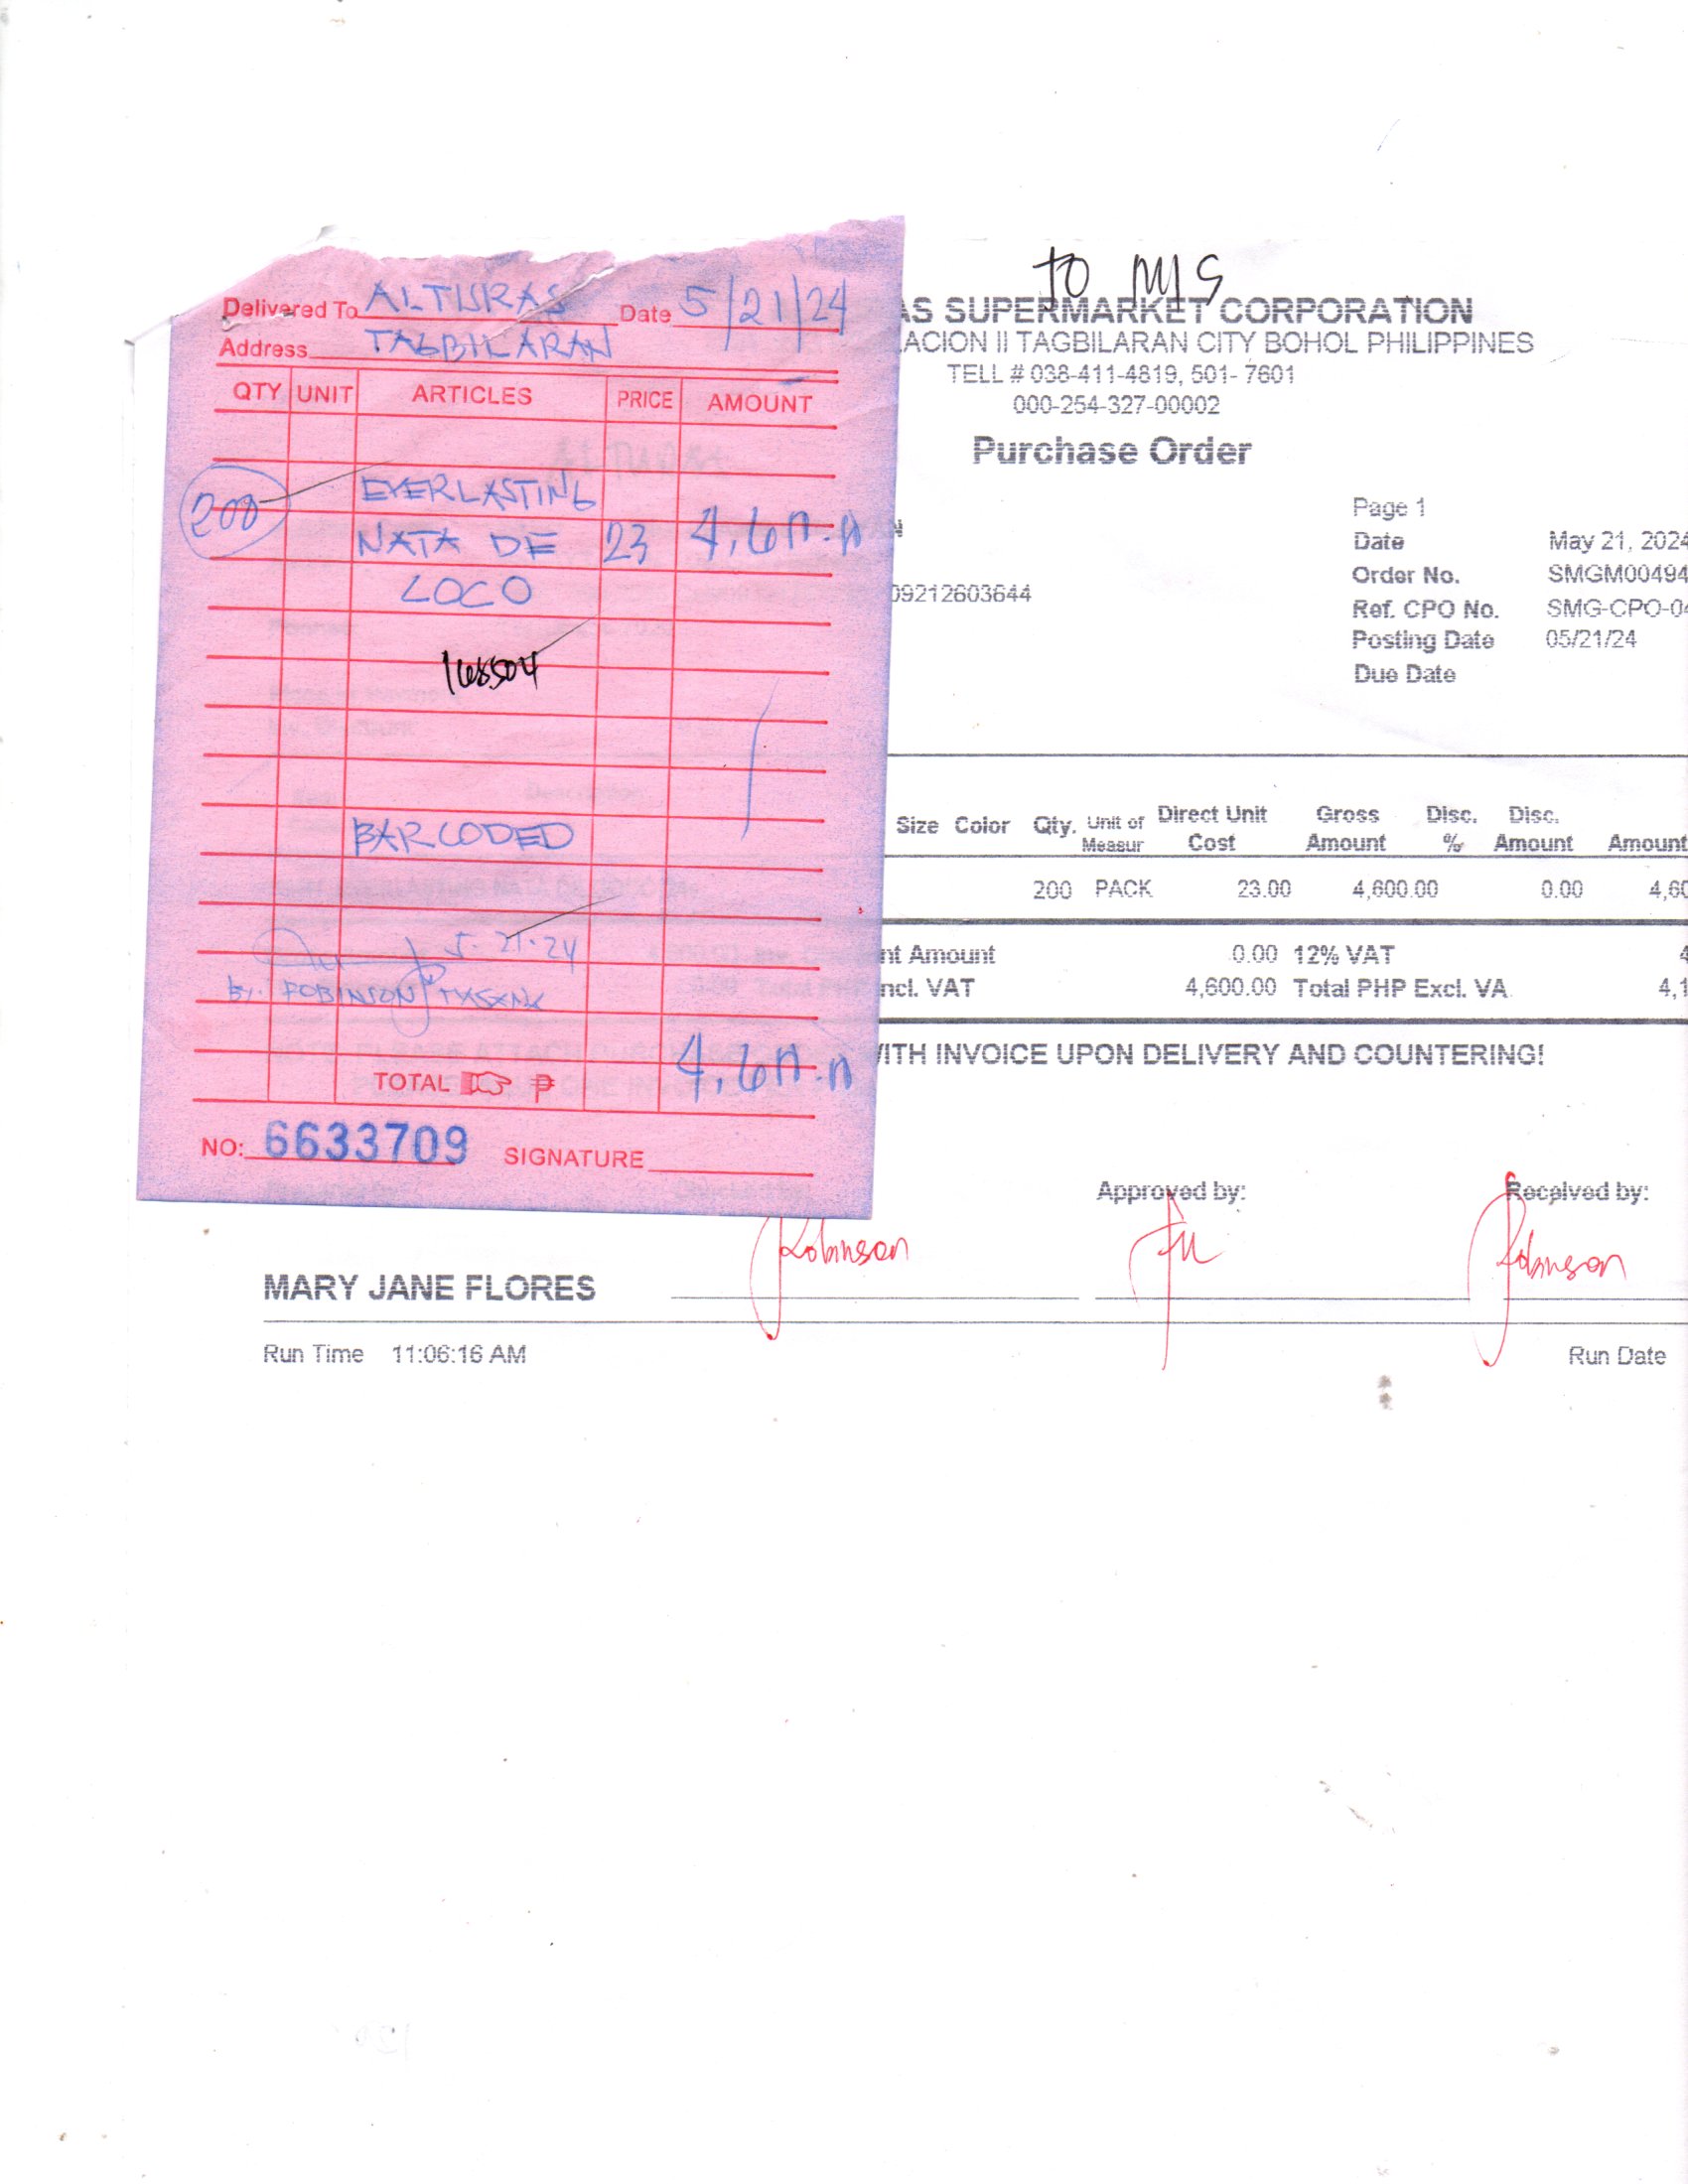 Delivered To ALTURAS Date 5/21/24
Address TAGBILARAN
QTY UNIT ARTICLES PRICE AMOUNT
200 EVERLASTING
NATA DE 23 4,600.00
COCO
168504
BARCODED
5-21-24
by: ROBINSON
TOTAL ₱ 4,600.00
NO: 6633709 SIGNATURE
to MS
AS SUPERMARKET CORPORATION
ACION II TAGBILARAN CITY BOHOL PHILIPPINES
TELL # 038-411-4819, 501- 7601
000-254-327-00002
Purchase Order
Page 1
Date May 21, 2024
Order No. SMGM00494
Ref. CPO No. SMG-CPO-04
09212603644
Posting Date 05/21/24
Due Date
Size Color Qty. Unit of Measur Direct Unit Cost Gross Amount Disc. % Disc. Amount Amount
200 PACK 23.00 4,600.00 0.00 4,60
nt Amount 0.00 12% VAT 4
ncl. VAT 4,600.00 Total PHP Excl. VA 4,1
WITH INVOICE UPON DELIVERY AND COUNTERING!
Approved by: Received by:
Robinson Robinson
MARY JANE FLORES
Run Time 11:06:16 AM Run Date